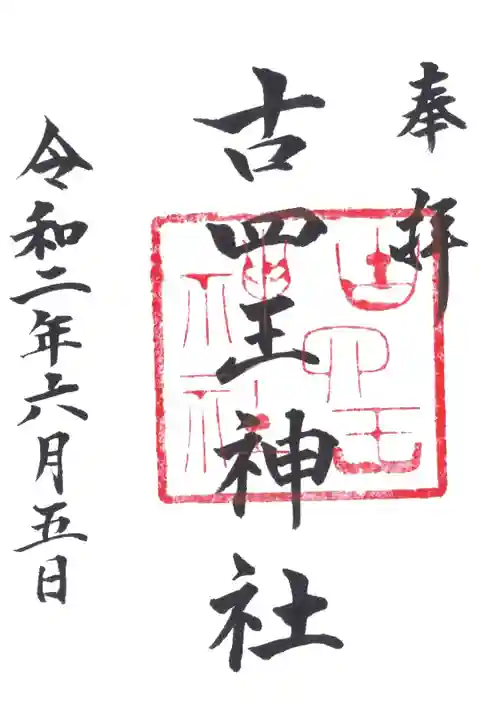 奉拝
古四王神社
古四王
神社
令和二年六月五日